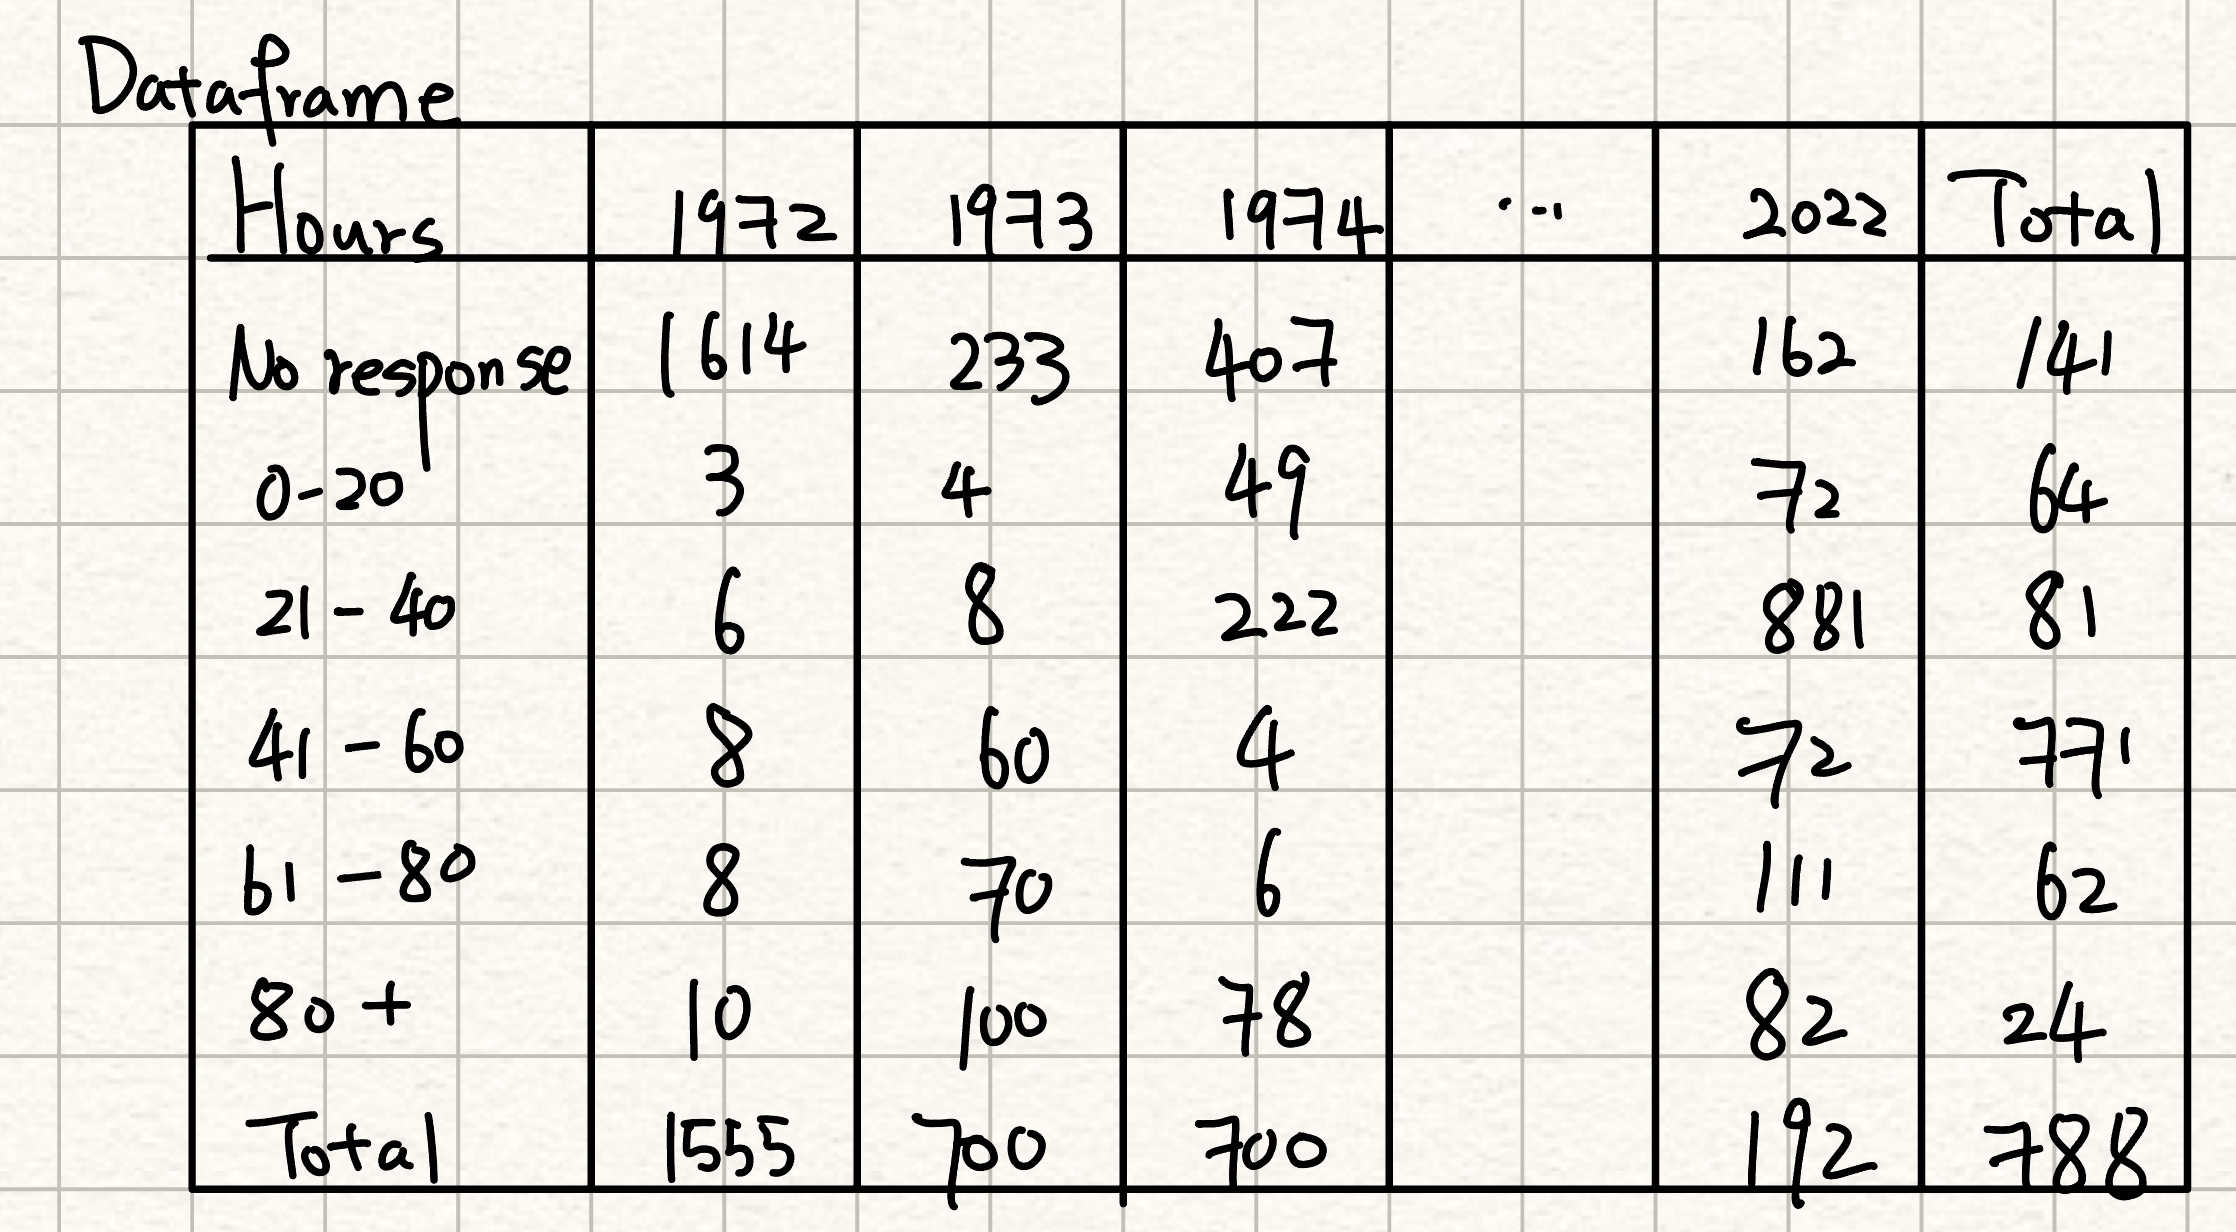 Dataframe
Hours 1972 1973 1974 ... 2022 Total
No response 1614 233 407 162 141
0-20 3 4 49 72 64
21-40 6 8 222 881 81
41-60 8 60 4 72 771
61-80 8 70 6 111 62
80+ 10 100 78 82 24
Total 1555 700 700 192 788